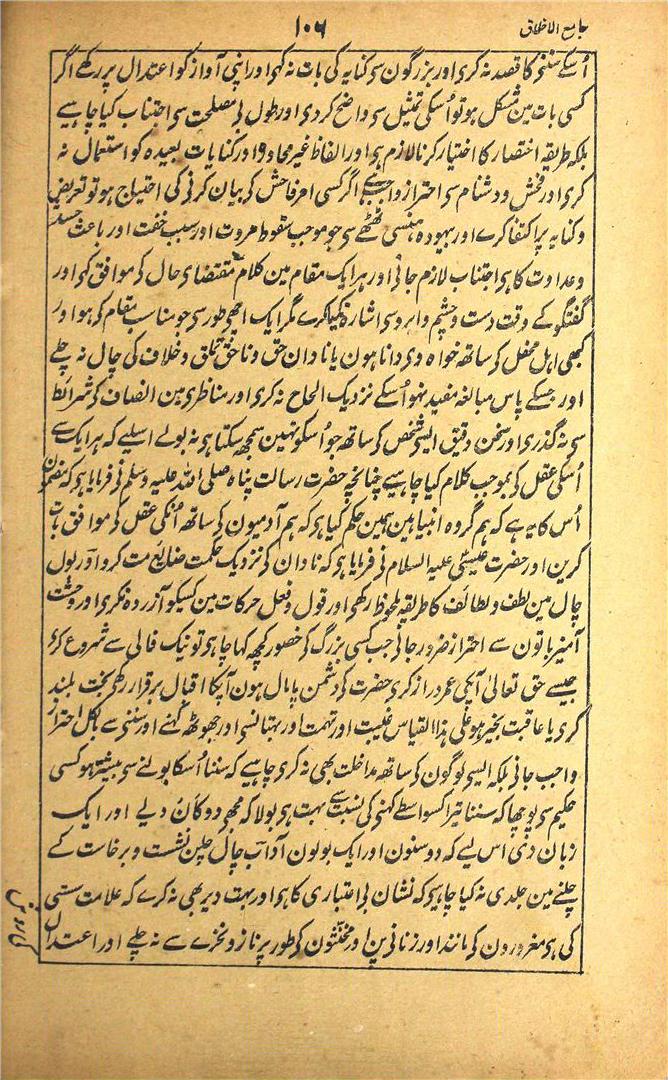 جامع الاخلاق
۱۰۶
اُسکے سننی کا قصد نہ کری اور بزرگون سی کنایہ کی بات نہ کہی اور اپنی آواز کو اعتدال پر رکھے اگر
کسی بات مین مشکل ہو تو اُسکی تمثیل سی واضح کر دی اور طول بی مصلحت سی اجتناب کیا چاہیے
بلکہ طریقہ اختصار کا اختیار کرنا لازم ہی اور الفاظ غیر محاورہ اور کنایات بعیدہ کو استعمال نہ
کری اور فحش و دشنام سی احتراز واجب ہے اگر کسی امر فاحش کی بیان کرنی کی احتیاج ہو تو تعریض
و کنایہ پر اکتفا کرے اور بیہودہ ہنسی ٹھٹھے سی جو موجب سقوط مروت اور سبب خفت اور باعث حسد
و عداوت کا ہی اجتناب لازم جانی اور ہر ایک مقام مین کلام مقتضای حال کی موافق کہی اور
گفتگو کے وقت دست و چشم و ابرو سی اشارہ نکیا کرے مگر ایک اچھی طور سی جو مناسب مقام کی ہو اور
کبھی اہل محفل کی ساتھ خواہ وی دانا ہون یا نادان حق و ناحق تملق و خلاف کی چال نہ چلے
اور جسکے پاس مبالغہ مفید نہو اُسکے نزدیک الحاح نہ کری اور مناظری مین انصاف کی شرائط
سی نہ گذری اور سخن دقیق ایسی شخص کی ساتھ جو اُسکو نہین سمجھ سکتا ہی نہ بولے اسلیے کہ ہر ایک سے
اُسکی عقل کی بموجب کلام کیا چاہیے چنانچہ حضرت رسالت پناہ صلی اللہ علیہ وسلم نی فرمایا ہی کہ مضمون
اُس کا یہ ہے کہ ہم گروہ انبیا ہین ہمین حکم کیا ہی کہ ہم آدمیون کی ساتھ اُنکی عقل کی موافق بات
کرین اور حضرت عیسیٰ علیہ السلام نی فرمایا ہی کہ نادان کی نزدیک حکمت ضایع مت کرو اور بول
چال مین لطف و لطائف کا طریقہ ملحوظ رکھی اور قول و فعل حرکات مین کسیکو آزردہ نکری اور وحشت
آمیز باتون سے احتراز ضرور جانی جب کسی بزرگ کی حضور کچھ کہا چاہی تو نیک فالی سے شروع کری
جیسے حق تعالیٰ آپکی عمر دراز کری حضرت کی دشمن پامال ہون آپکا اقبال برقرار رکھی بخت بلند
کری یا عاقبت بخیر ہو علی ہذا القیاس غیبت اور تہمت اور بہتان سی اور جھوٹھ کہنے اور سننی سے بالکل احتراز
واجب جانی بلکہ ایسی لوگون کی ساتھ مداخلت بھی نہ کری چاہیے کہ سننا اُسکا بولنے سی بیشتر ہو کسی
حکیم سی پوچھا کہ سننا تیرا کسواسطے کہنی کی نسبت سے بہت ہی بولا کہ مجھی دو کان دیے اور ایک
زبان دی اس لیے کہ دو سنون اور ایک بولون آداب چال چلن نشست و برخاست کے
چلنے مین جلدی نہ کیا چاہیی کہ نشان بی اعتباری کا ہی اور بہت دیر بھی نہ کرے کہ علامت سستی
کی ہی مغرورون کی مانند اور زنانی پن اور مخنثون کی طور پر ناز و نخرے سے نہ چلے اور اعتدال